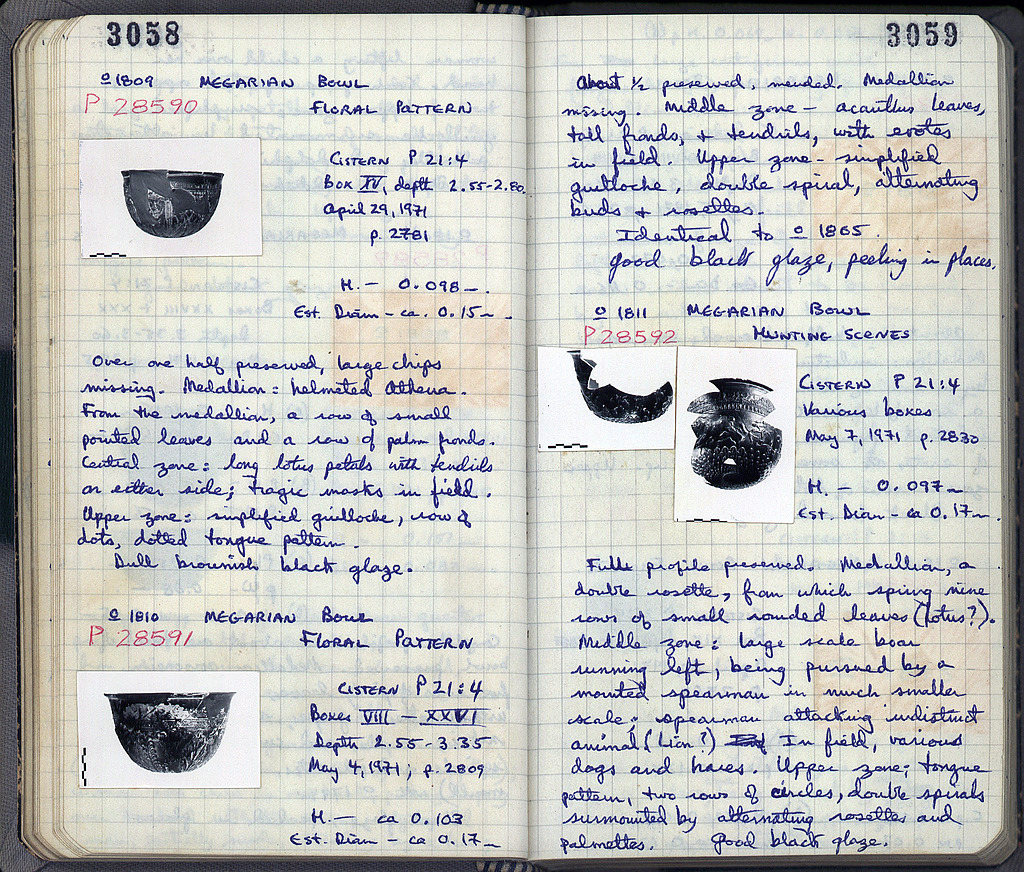 3058
Ω 1809 MEGARIAN BOWL
P 28590 FLORAL PATTERN
CISTERN P 21:4
Box XV, depth 2.55-2.80
April 29, 1971
p. 2781
H. – 0.098 –.
Est. Diam – ca. 0.15 –.
Over one half preserved, large chips
missing. Medallion: helmeted Athena.
From the medallion, a row of small
pointed leaves and a row of palm fronds.
Central zone: long lotus petals with tendrils
on either side; tragic masks in field.
Upper zone: simplified guilloche, row of
dots, dotted tongue pattern.
Dull brownish black glaze.
Ω 1810 MEGARIAN BOWL
P 28591 FLORAL PATTERN
CISTERN P 21:4
Boxes VIII – XXVI
Depth 2.55-3.35
May 4, 1971; p. 2809
H. – ca 0.103
Est. Diam – ca 0.17 –
3059
About 1/2 preserved, mended. Medallion
missing. Middle zone – acanthus leaves,
tall fronds, + tendrils, with erotes
in field. Upper zone – simplified
guilloche, double spiral, alternating
buds + rosettes.
Identical to Ω 1865.
Good black glaze, peeling in places.
Ω 1811 MEGARIAN BOWL
P 28592 HUNTING SCENES
CISTERN P 21:4
Various boxes
May 7, 1971 p. 2830
H. – 0.097 –
Est. Diam – ca 0.17 –.
Full profile preserved. Medallion, a
double rosette, from which spring nine
rows of small rounded leaves (lotus?).
Middle zone: large scale boar
running left, being pursued by a
mounted spearman in much smaller
scale; spearman attacking indistinct
animal (Lion?) In field, various
dogs and hares. Upper zone; tongue
pattern, two rows of circles, double spirals
surmounted by alternating rosettes and
palmettes. Good black glaze.